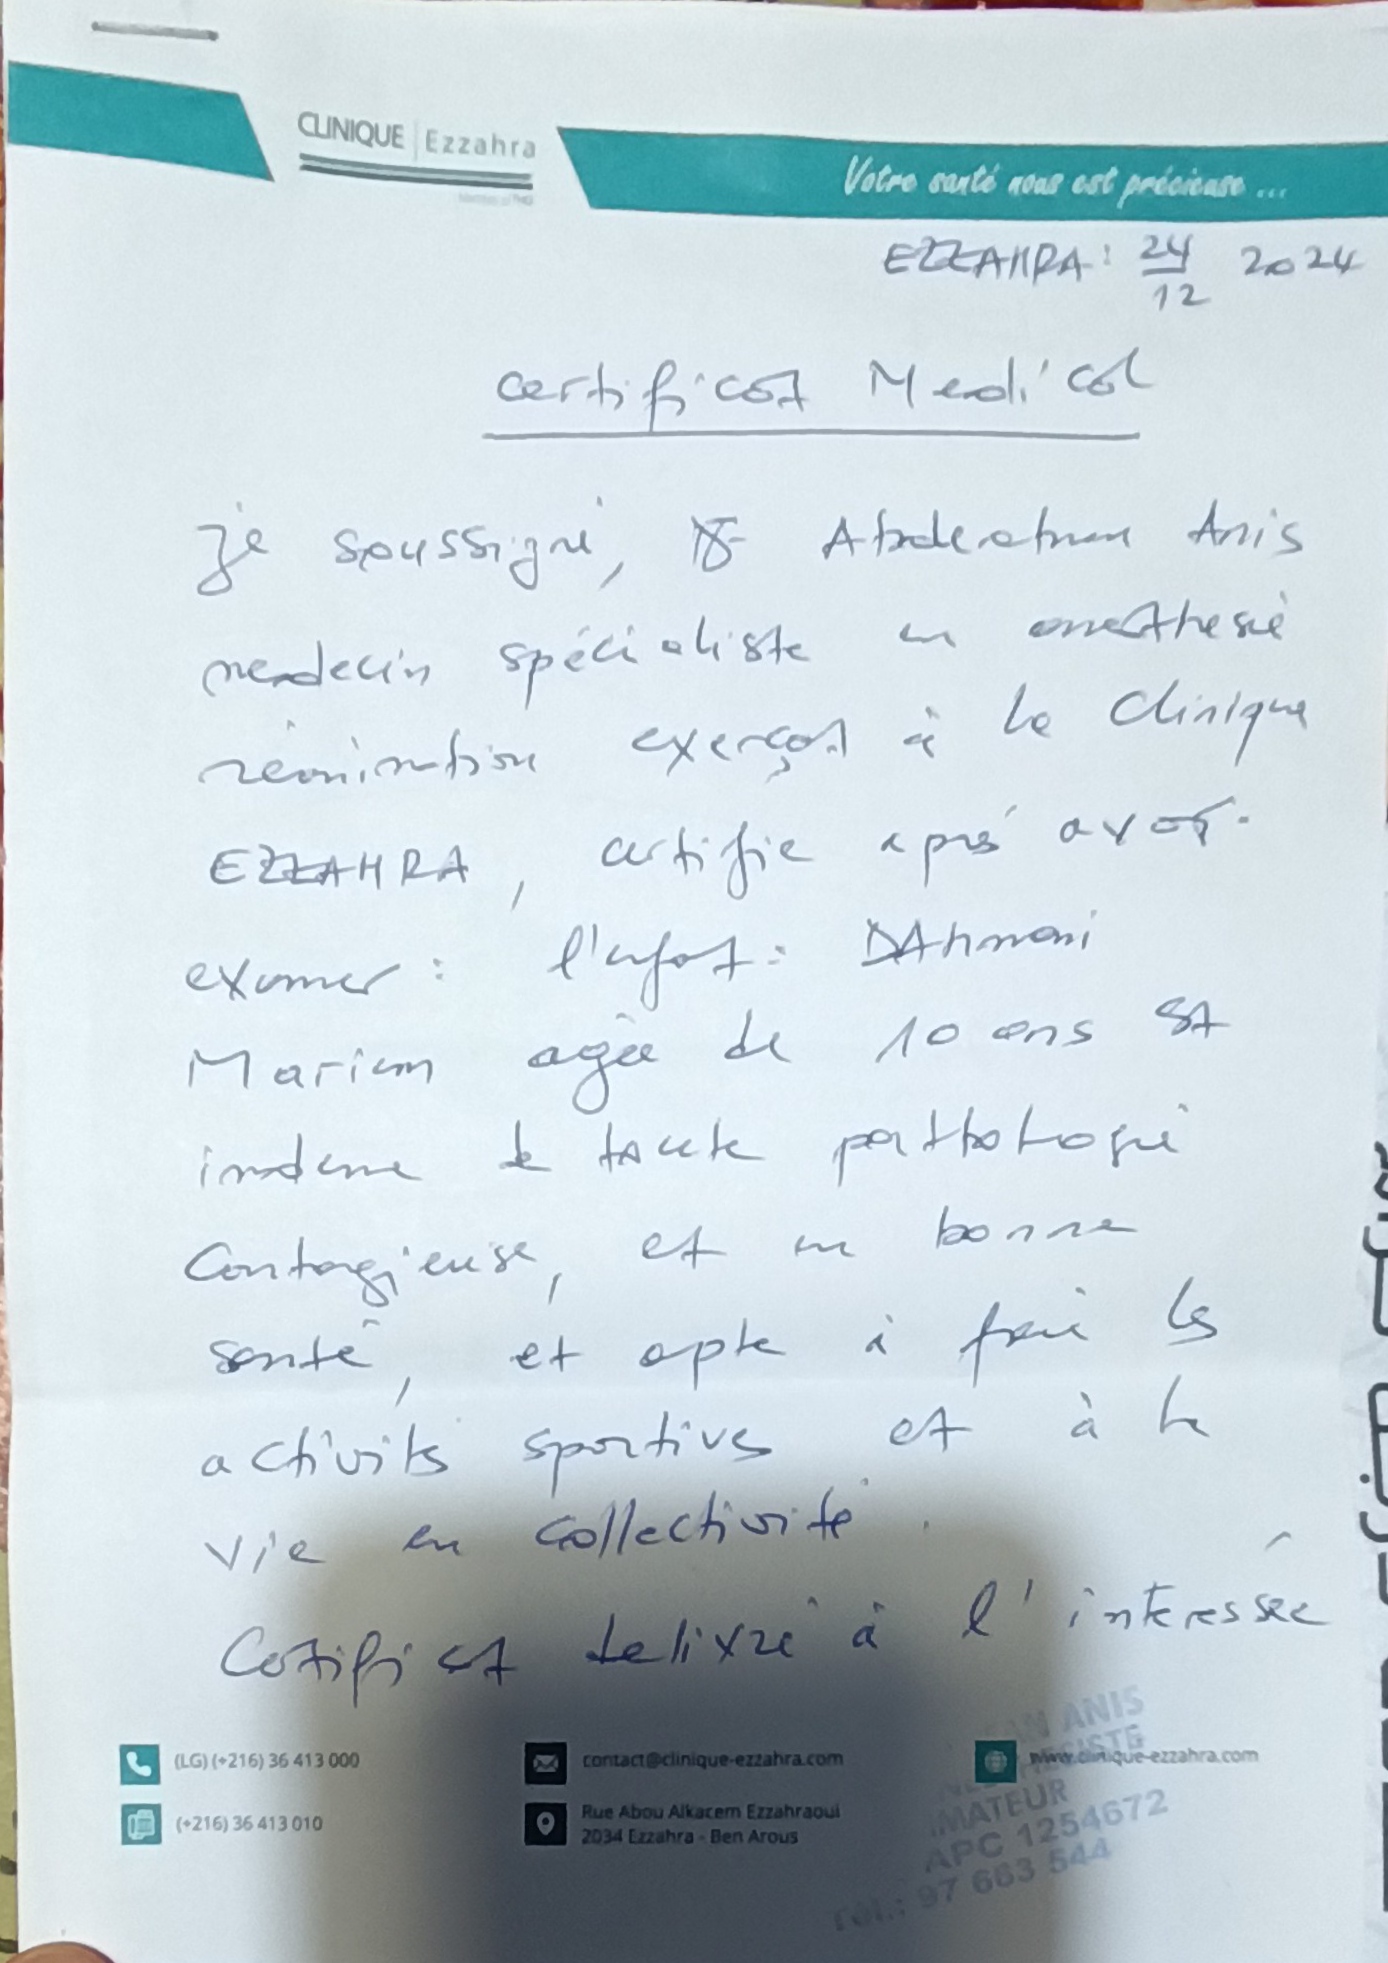 CLINIQUE | Ezzahra
Votre santé nous est précieuse ...
EZZAHRA: 24/12 2024
Certificat Medical
Je soussigné, Dr Abderatmen Anis
medecin spécialiste en anesthesie
réanimation exerçant à la Clinique
EZZAHRA, certifie aprés avoir
examiner : l'enfant : DAHmani
Mariem agée de 10 ans Et
indeme de toute pathologie
Contagieuse, et en bonne
santé, et apte à faire les
activités sportives et à la
vie en collectivité.
Certificat delivré à l'interessée
(LG) (+216) 36 413 000
contact@clinique-ezzahra.com
www.clinique-ezzahra.com
(+216) 36 413 010
Rue Abou Alkacem Ezzahraoui
2034 Ezzahra - Ben Arous
ANIS
APC 1254672
Tél.: 97 663 544